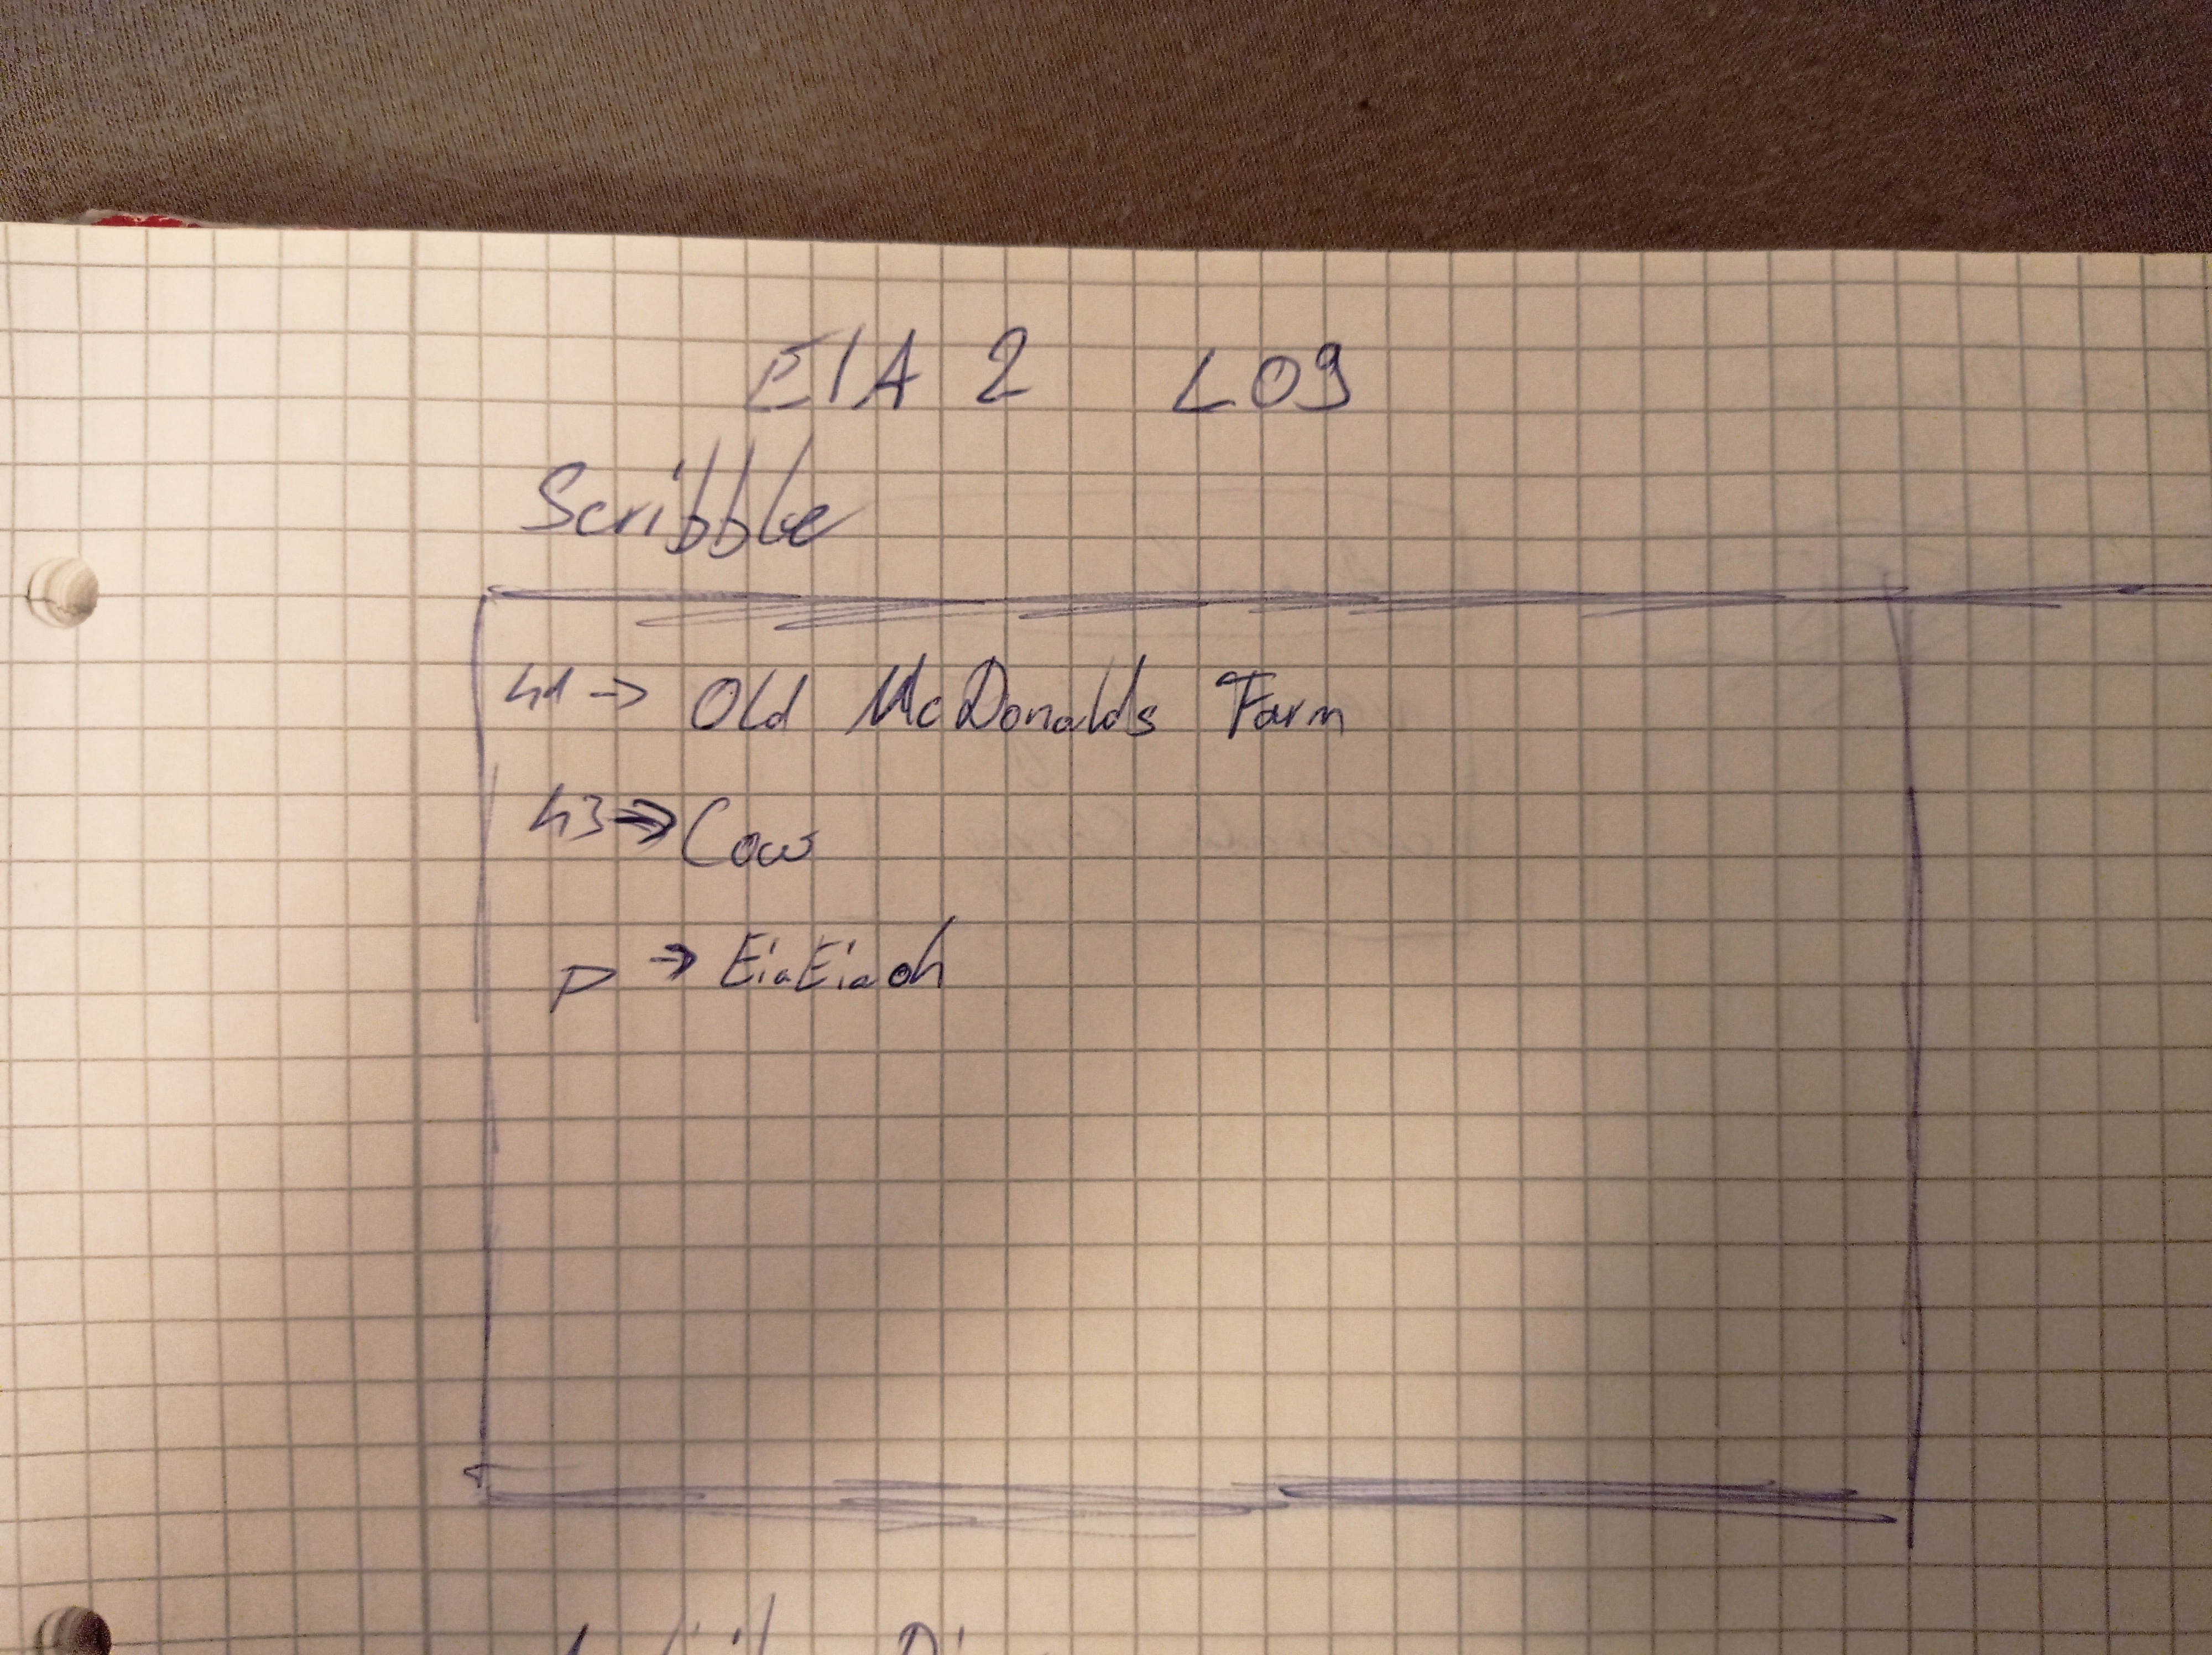 EIA 2 L09
Scribble
h1 -> Old McDonalds Farm
h3 => Cow
p -> EiaEiaoh